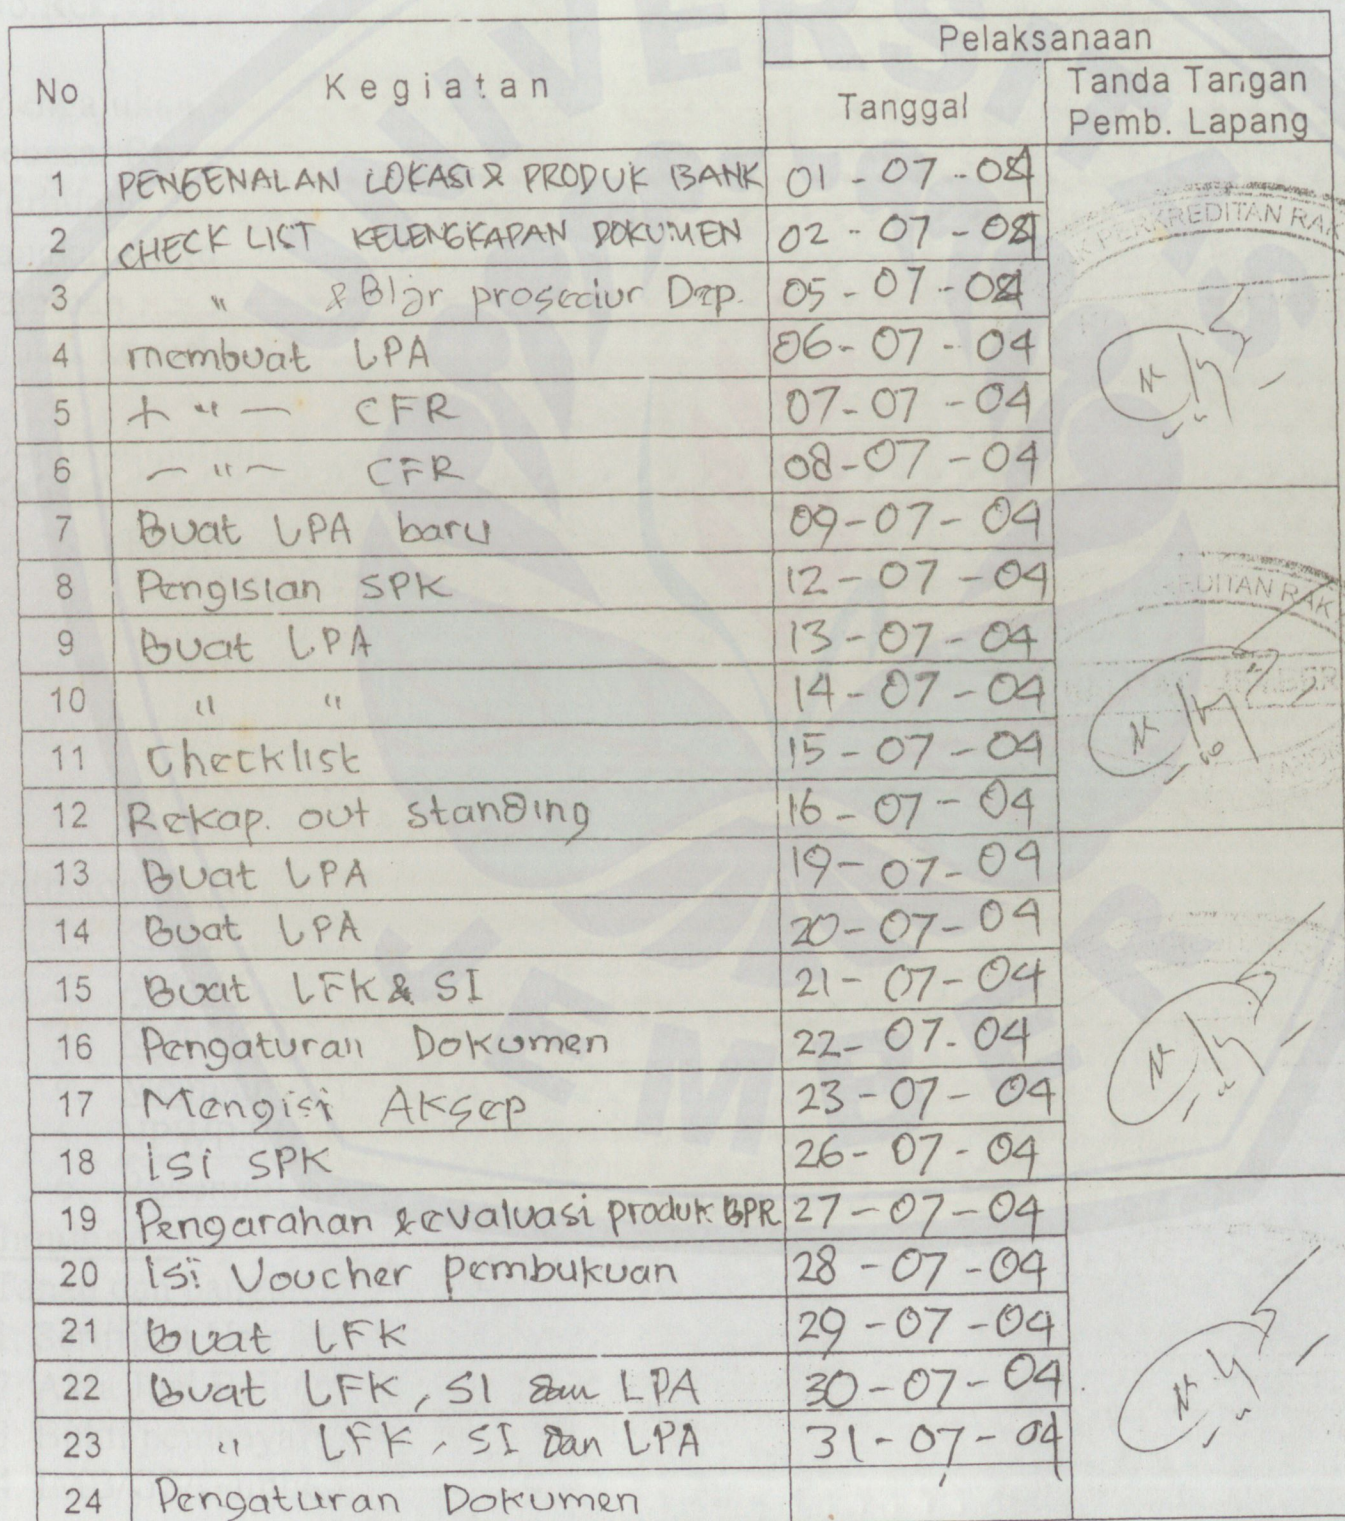 Pelaksanaan
No Kegiatan Tanggal Tanda Tangan Pemb. Lapang
1 PENGENALAN LOKASI & PRODUK BANK 01-07-04
2 CHECK LIST KELENGKAPAN DOKUMEN 02-07-04
3 " & Bljr prosedur Dep. 05-07-04
4 membuat LPA 06-07-04
5 — " — CFR 07-07-04
6 — " — CFR 08-07-04
7 Buat LPA baru 09-07-04
8 Pengisian SPK 12-07-04
9 Buat LPA 13-07-04
10 " " 14-07-04
11 Checklist 15-07-04
12 Rekap. out standing 16-07-04
13 Buat LPA 19-07-04
14 Buat LPA 20-07-04
15 Buat LFK & SI 21-07-04
16 Pengaturan Dokumen 22-07-04
17 Mengisi Aksep 23-07-04
18 isi SPK 26-07-04
19 Pengarahan & evaluasi produk BPR 27-07-04
20 Isi Voucher pembukuan 28-07-04
21 Buat LFK 29-07-04
22 Buat LFK, SI dan LPA 30-07-04
23 " LFK, SI dan LPA 31-07-04
24 Pengaturan Dokumen
PERKREDITAN RAK
EDITAN RAK